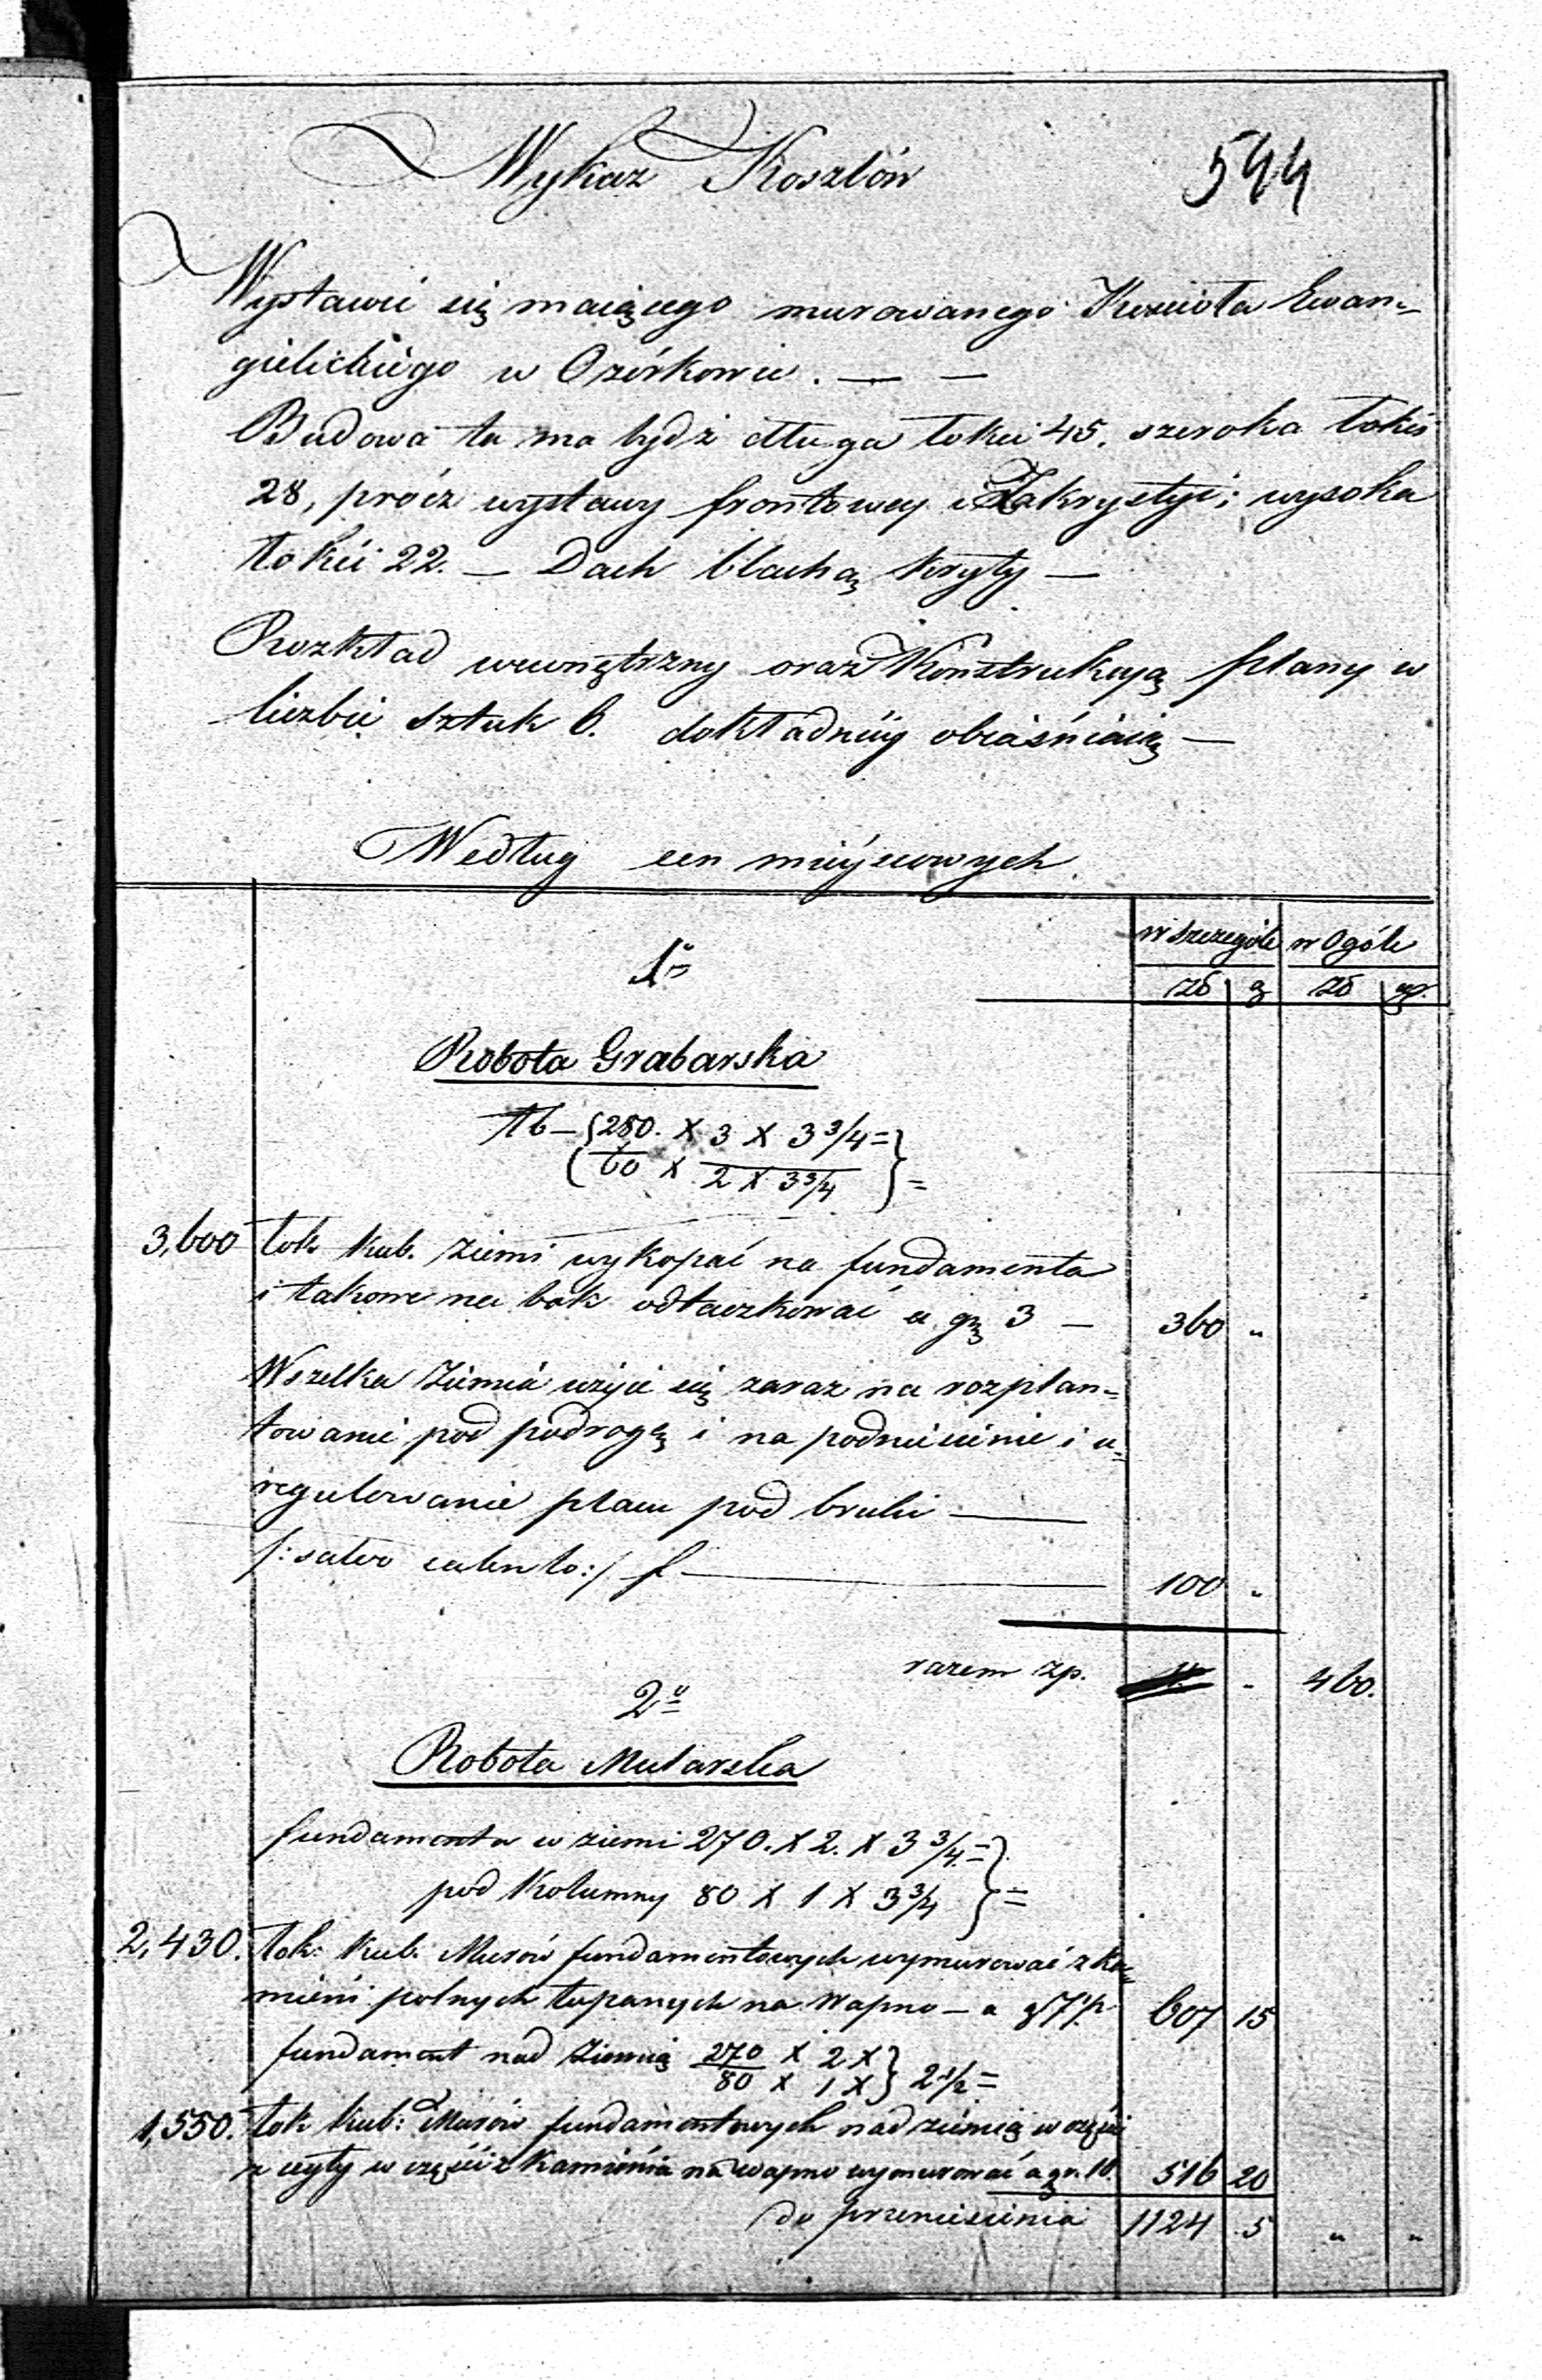 Wykaz Kosztów
544
Wystawić się maiącego murowanego Kościoła Ewan-
gielickiego w Ozórkowie. — —
Budowa ta ma bydź długa łokci 45. szeroka łokci
28, prócz wystawy frontowey i Zakrystyi; wysoka
łokci 22. — Dach blachą kryty —
Rozkład wewnętrzny oraz Konstrukcyą plany w
liczbie sztuk 6. dokładniey obiaśniaią —
Według cen mieyscowych.
w szczególe w Ogóle
zł g zł gr.
1o
Robota Grabarska
{280. X 3 X 3 3/4 =}
{60 X 2 X 3 3/4} =
3,600 łok kub. ziemi wykopać na fundamenta
i takowe na bok odtaczkować a gr 3 — 360 „
Wszelka ziemia użyie się zaraz na rozplan-
towanie pod podłogę i na podniesienie i u-
regulowanie placu pod bruki —
/: salvo calculo :/ f — 100 „
razem zp. „ 460.
2o
Robota Mularska
fundamenta w ziemi 270. X 2. X 3 3/4. =}
pod Kolumny 80 X 1 X 3 3/4 } =
2,430. łok: kub: Murów fundamentowych wymurować z ka-
mieni polnych łupanych na wapno — a g 7 1/2 607 15
fundament nad ziemią 270 X 2 X }
80 X 1 X } 2 1/2 =
1,550. łok kub: Murów fundamentowych nad ziemią w części
z cegły w części z Kamienia na wapno wymurować a gr. 10. 516 20
do przeniesienia 1124 5 „ „